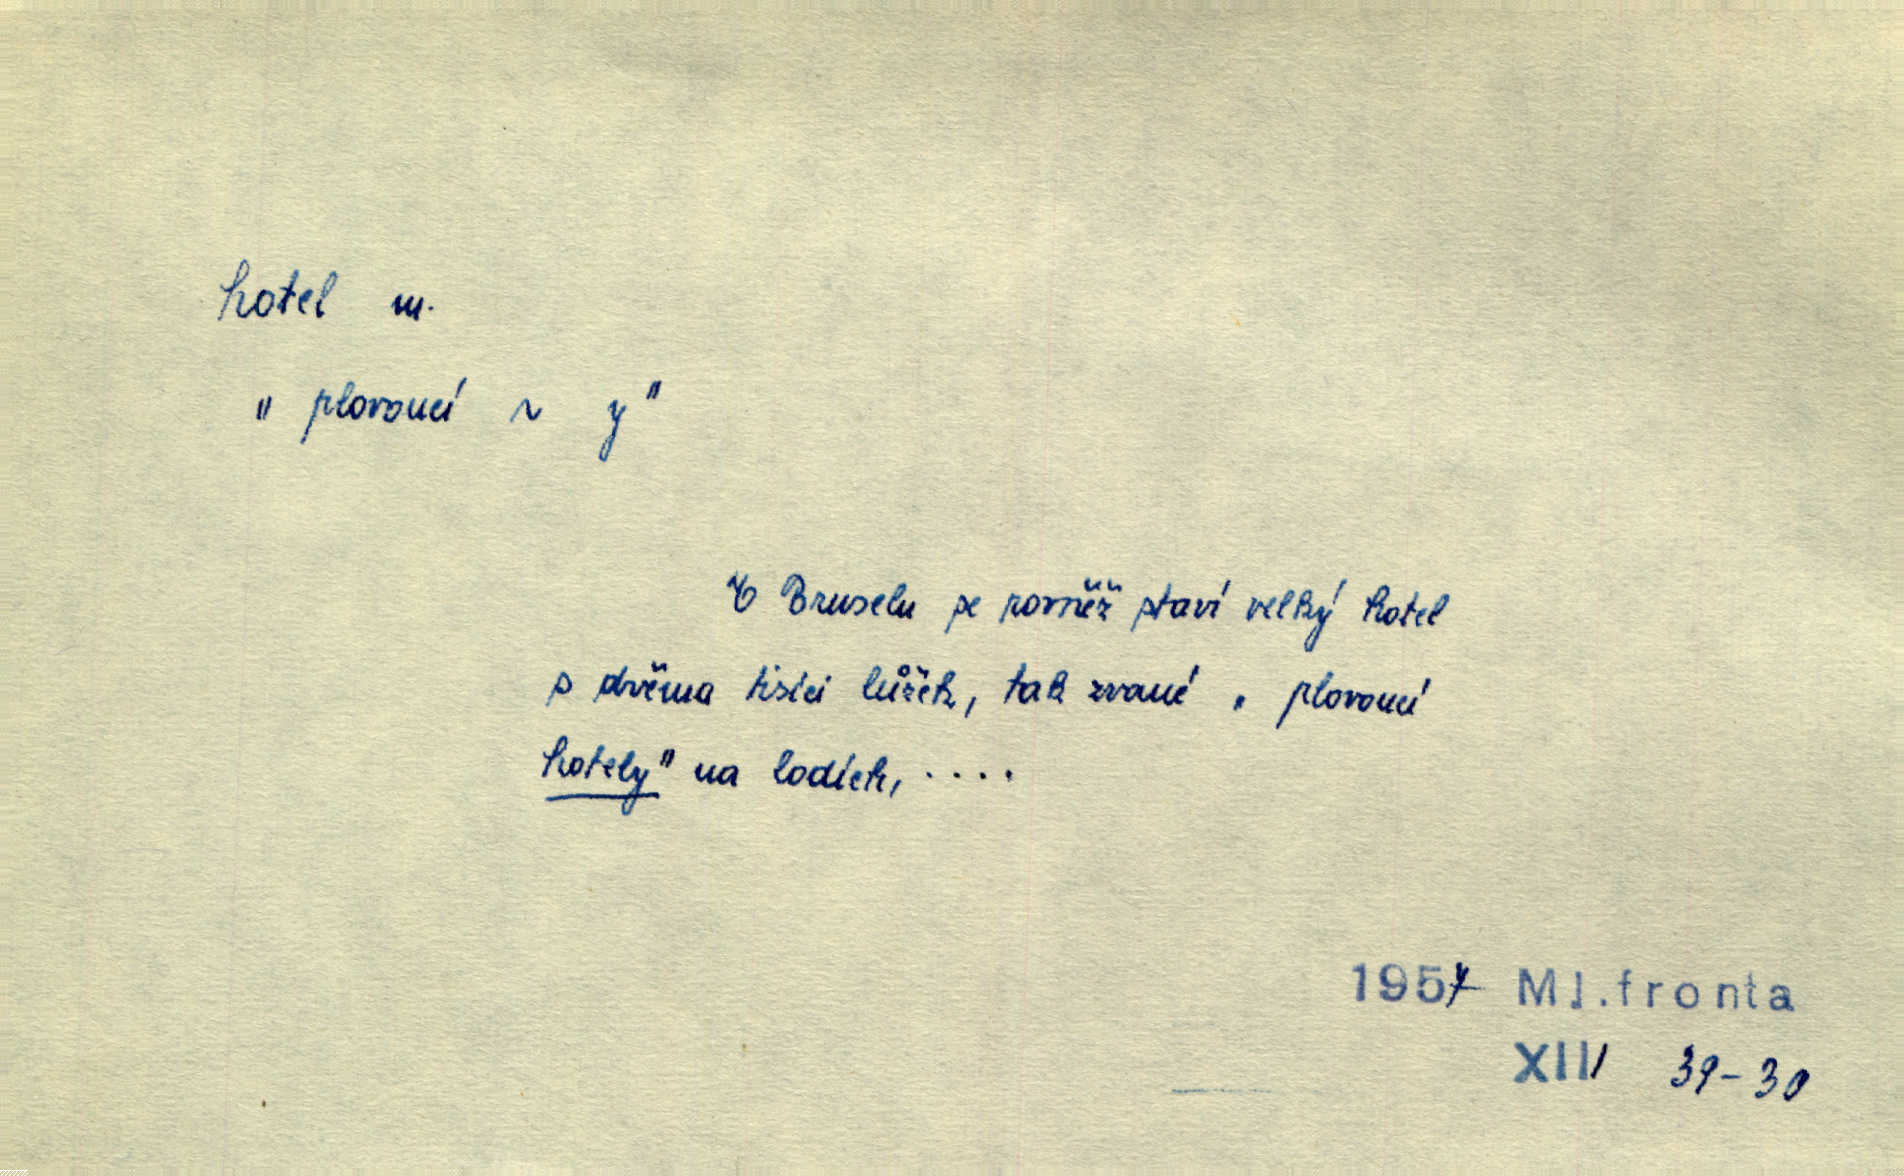 hotel m.
„ plovoucí ~ y"
V Bruselu se rovněž staví velký hotel
s dvěma tisíci lůžek, tak zvané „ plovoucí
hotely" na lodích, ....
1957 Ml.fronta
XIII 39-30